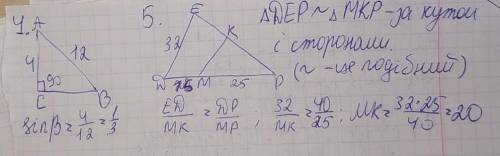 4. A
4
12
90
C
B
sinβ = 4/12 = 1/3
5.
E
K
32
D 15 M 25 P
△DEP ~ △MKP - за кутом
і сторонами.
(~ - це подібний)
ED/MK = DP/MP, 32/MK = 40/25; MK = 32·25/40 = 20